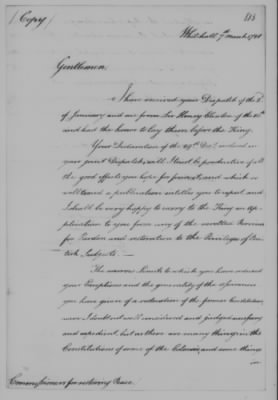 (Copy)
Whitehall 7th March 1781
Gentlemen,
I have received your Dispatch of the
of January and one from Sir Henry Clinton of the
and had the honor to lay them before the King.
Your Declaration of the 29th Decr. inclosed in
your joint Dispatch, will I trust be productive of all
the good effects you hope for from it, and which so
well timed a publication entitles you to expect, and
I shall be very happy to convey to the King an ap-
plication to you from any of the revolted Provinces
for Pardon and restoration to the Privileges of Bri-
tish Subjects.
The narrow limits to which you have reduced
your Exceptions and the generality of the assurance
you have given of a restoration of the former Constitution
were I doubt not well considered and judged necessary
and expedient, but as there are many things in the
Constitutions of some of the Colonies, and some things
in
Commissioners for restoring Peace.